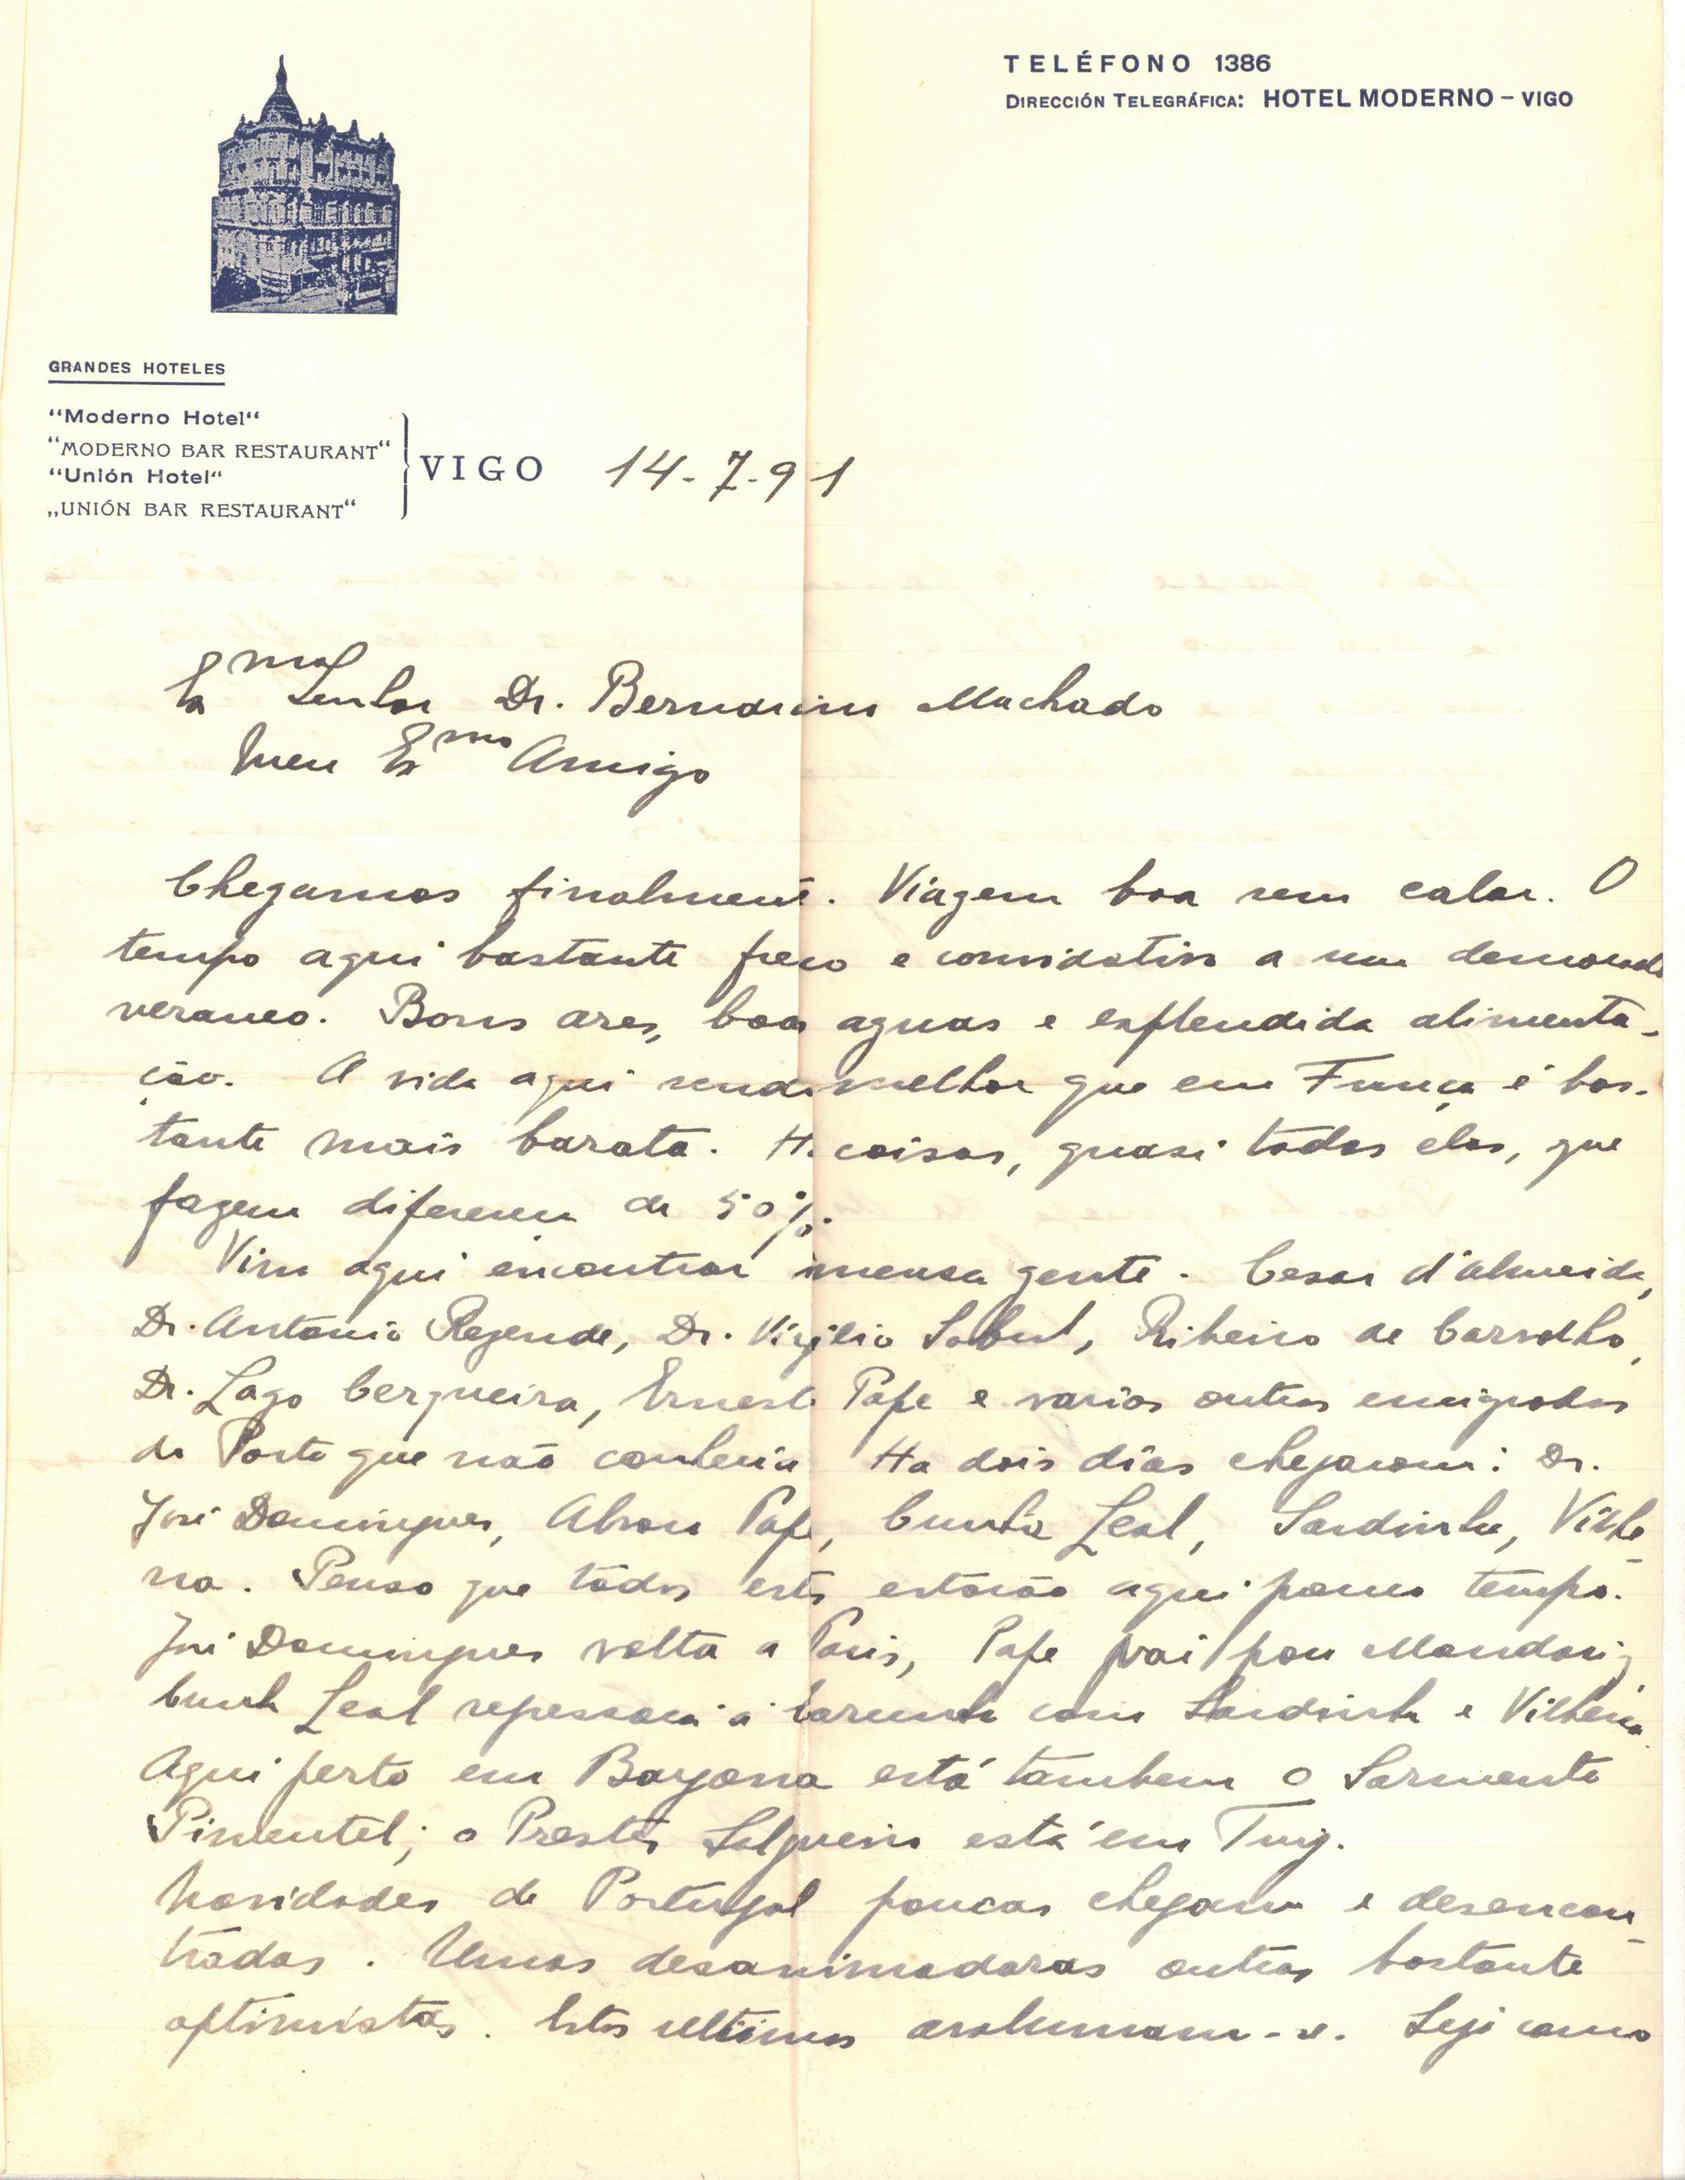 TELÉFONO 1386
DIRECCIÓN TELEGRÁFICA: HOTEL MODERNO – VIGO
GRANDES HOTELES
“Moderno Hotel“
“MODERNO BAR RESTAURANT“
“Unión Hotel“
„UNIÓN BAR RESTAURANT“
VIGO 14-7-91
Exmo Senhor Dr. Bernardino Machado
Meu Exmo Amigo
Chegamos finalmente. Viagem boa sem calor. O
tempo aqui bastante fresco e convidativo a um demorado
veraneo. Bons ares, boas aguas e esplendida alimenta-
ção. A vida aqui sendo melhor que em França é bas-
tante mais barata. Ha coisas, quasi todas elas, que
fazem diferença de 50%.
Vim aqui encontrar imensa gente. Cesar d'Almeida,
Dr. Antonio Rezende, Dr. Virgilio Sabugal, Ribeiro de Carvalho,
Dr. Lago Cerqueira, Ernesto Pope e varios outros emigrados
do Porto que não conhecia. Ha dois dias chegaram: Dr.
José Domingues, Alvaro Pope, Cunha Leal, Sardinha, Vilhe-
na. Penso que todos estes estarão aqui pouco tempo.
José Domingues volta a Paris, Pope vai para Mondariz
Cunha Leal regressará á Corunha com Sardinha e Vilhena.
Aqui perto em Bayona está tambem o Sarmento
Pimentel; o Prestes Salgueiro está em Tuy.
Novidades de Portugal poucas chegam e desencon-
tradas. Umas desanimadoras outras bastante
optimistas. Estas ultimas avolumam-se. Seja como